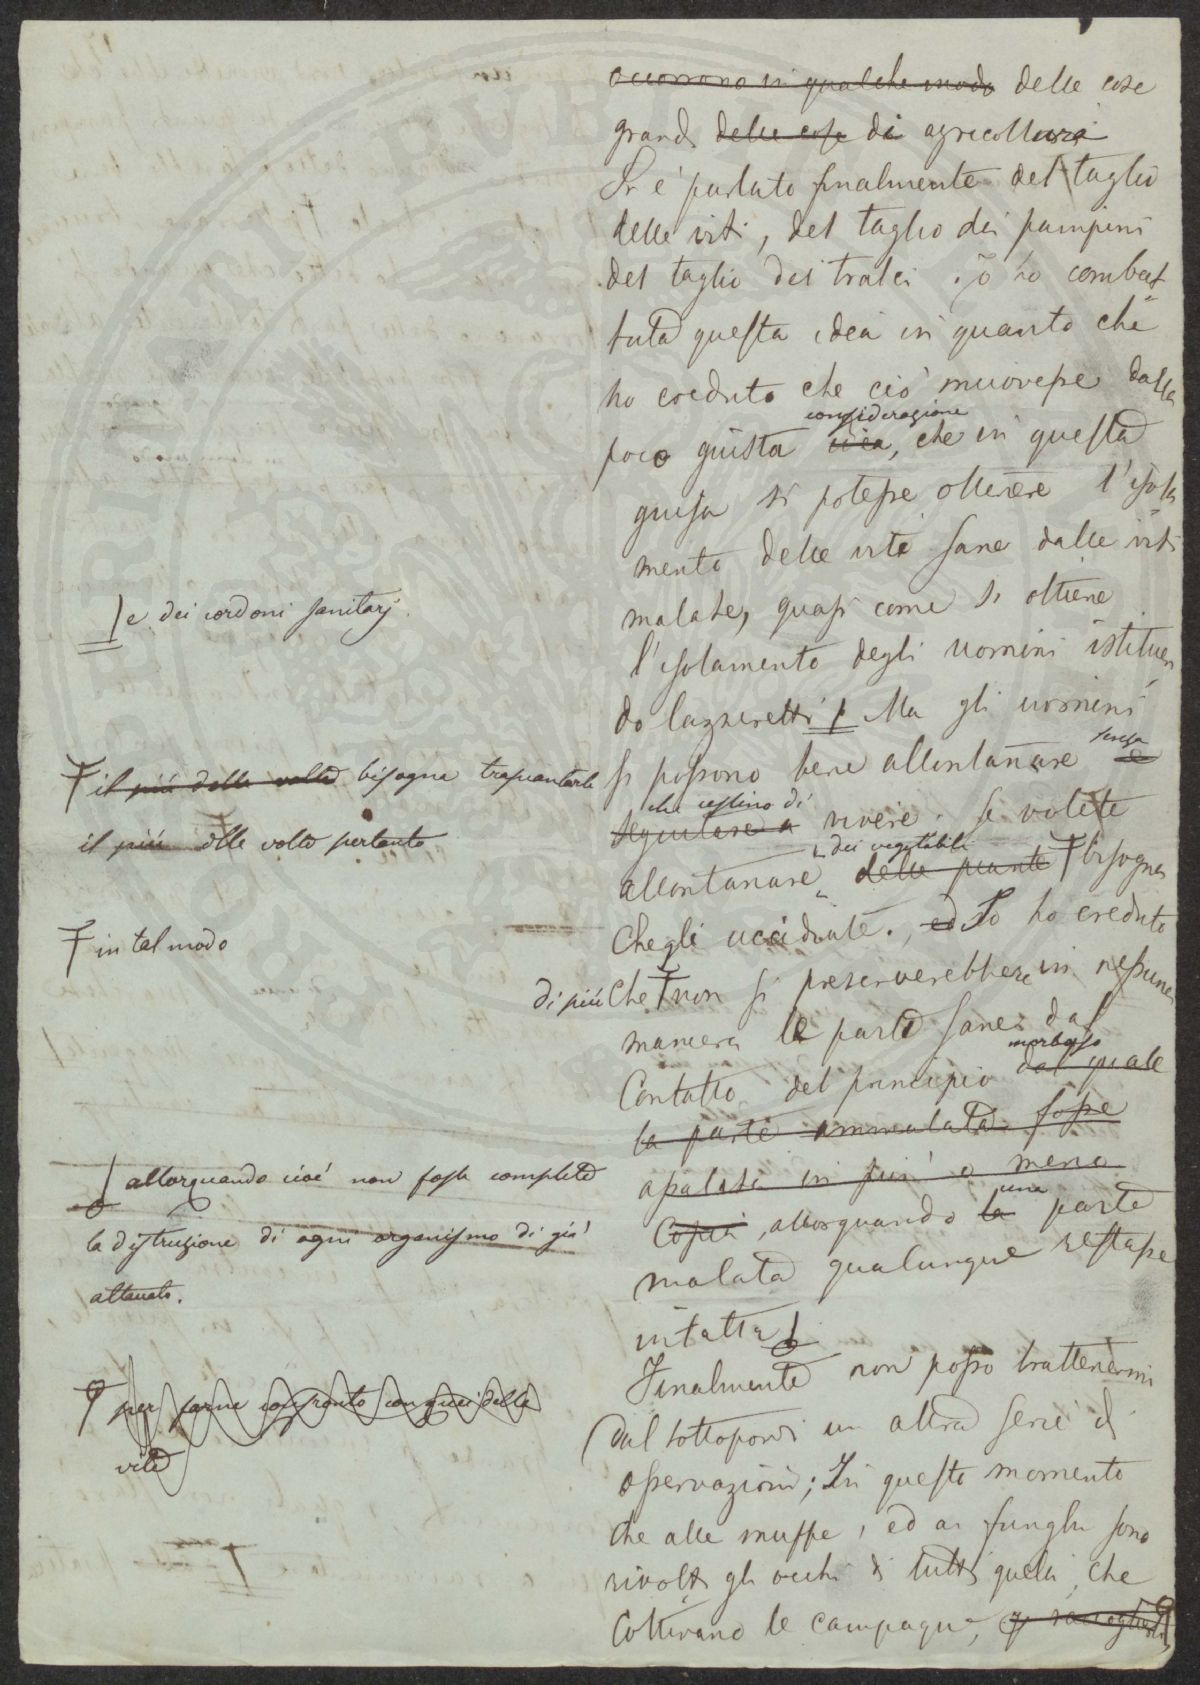 occorrono in qualche modo delle cose
grandi delle cose di agricoltura
Si è parlato finalmente del taglio
delle viti, del taglio dei pampini
del taglio dei tralci. Io ho combat
tuta questa idea in quanto che
ho creduto che ciò muovesse dalla
considerazione
poco giusta idea, che in questa
guisa si potesse ottenere l'isola
mento delle viti sane dalle viti
malate, quasi come si ottiene
e dei cordoni sanitarj
l'isolamento degli uomini istituen
do lazzeretti. Ma gli uomini
senza
si possono bene allontanare e
il più delle volte bisogna trapiantarle
che cessino di
seguitare a vivere. Se volete
il più delle volte pertanto
dei vegetabili
allontanare delle piante bisogna
che gli uccidiate, ed Io ho creduto
in tal modo
di più che non si preserverebbere in nessuna
maniera le parte sane dal
morboso
Contatto del principio dal quale
la parte ammalata fosse
apalata in più o meno
una
Copia, allorquando la parte
allorquando cioè non fosse completa
la distruzione di ogni organismo di già
attaccato.
malata qualunque restasse
intatta
Finalmente non posso trattenermi
per farne confronto con quei della
vite
dal sottoporvi un altra serie di
osservazioni; In questo momento
che alle muffe, ed ai funghi sono
rivolti gli occhi di tutti quelli che
Coltivano le campagne,